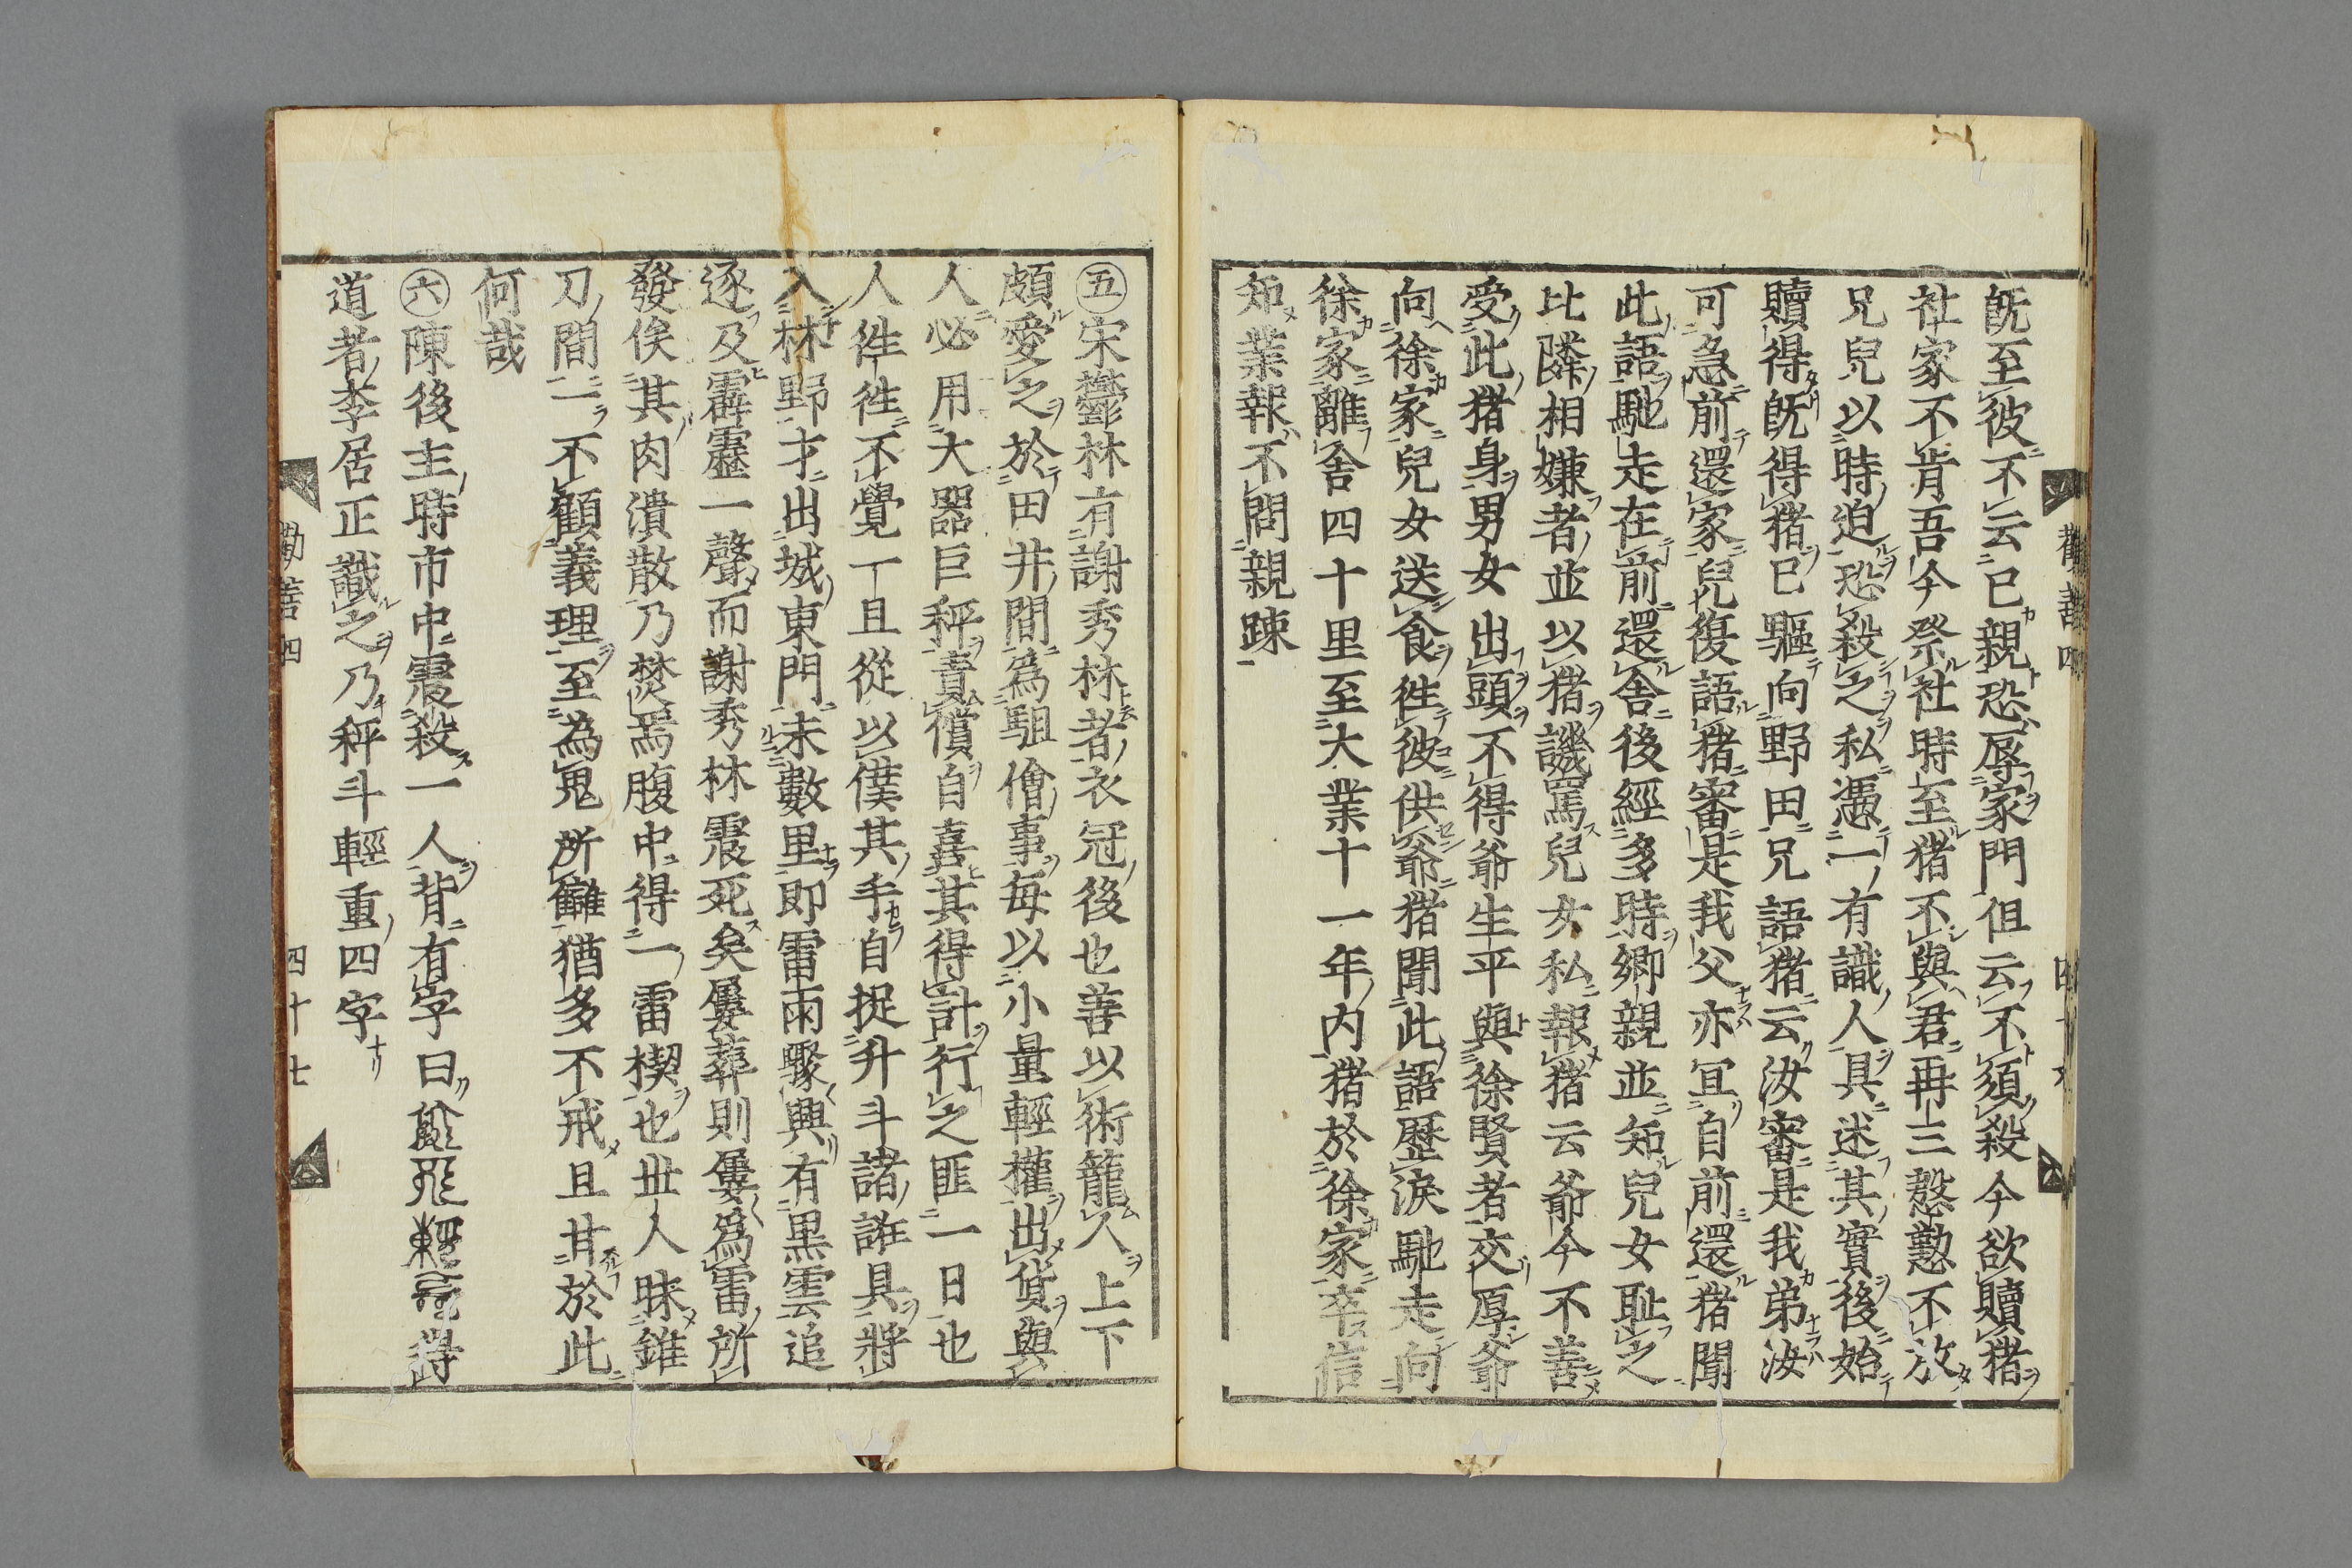 既至彼不云已親恐辱家門但云不須殺今欲贖猪
社家不肯吾今祭社時至猪不與君再三慇懃不放
兄兒以時迫恐殺之私憑一有識人具迷其實後始
贖得既得猪已驅向野田兄語猪云汝審是我弟汝
可急前還家兒復語猪審是我父亦冝自前還猪聞
此語馳走在前還舍後經多時郷親並知兒女耻之
比隣相嫌者並以猪譏罵兒女私報猪云爺今不善
受此猪身男女出頭不得爺生平與徐賢者交厚爺
向徐家兒女送食徃彼供爺猪聞此語歷淚馳走向
徐家離舍四十里至大業十一年内猪於徐家卒信
知業報不問親踈
勸善四
㊄宋鬱林有謝秀林者衣冠後也善以術籠人上下
頗愛之於田井間爲駔儈事每以小量輕權出貨與
人必用大器巨秤責償自喜其得計行之匪一日也
人徃徃不覺一且從以僕其手自捉升斗諸誑具將
入林野才出城東門未數里即雷雨驟興有黒雲追
逐及霹靂一聲而謝秀林震死矣屢葬則屢爲雷所
發俟其肉潰散乃焚焉腹中得一雷楔也丗人昧錐
刀間二不顧義理至為鬼所讎猶多不戒且甘於此
何哉
㊅陳後主時市中震殺一人背有字曰
道者李居正識之乃秤斗輕重四字
勸善四 四十七